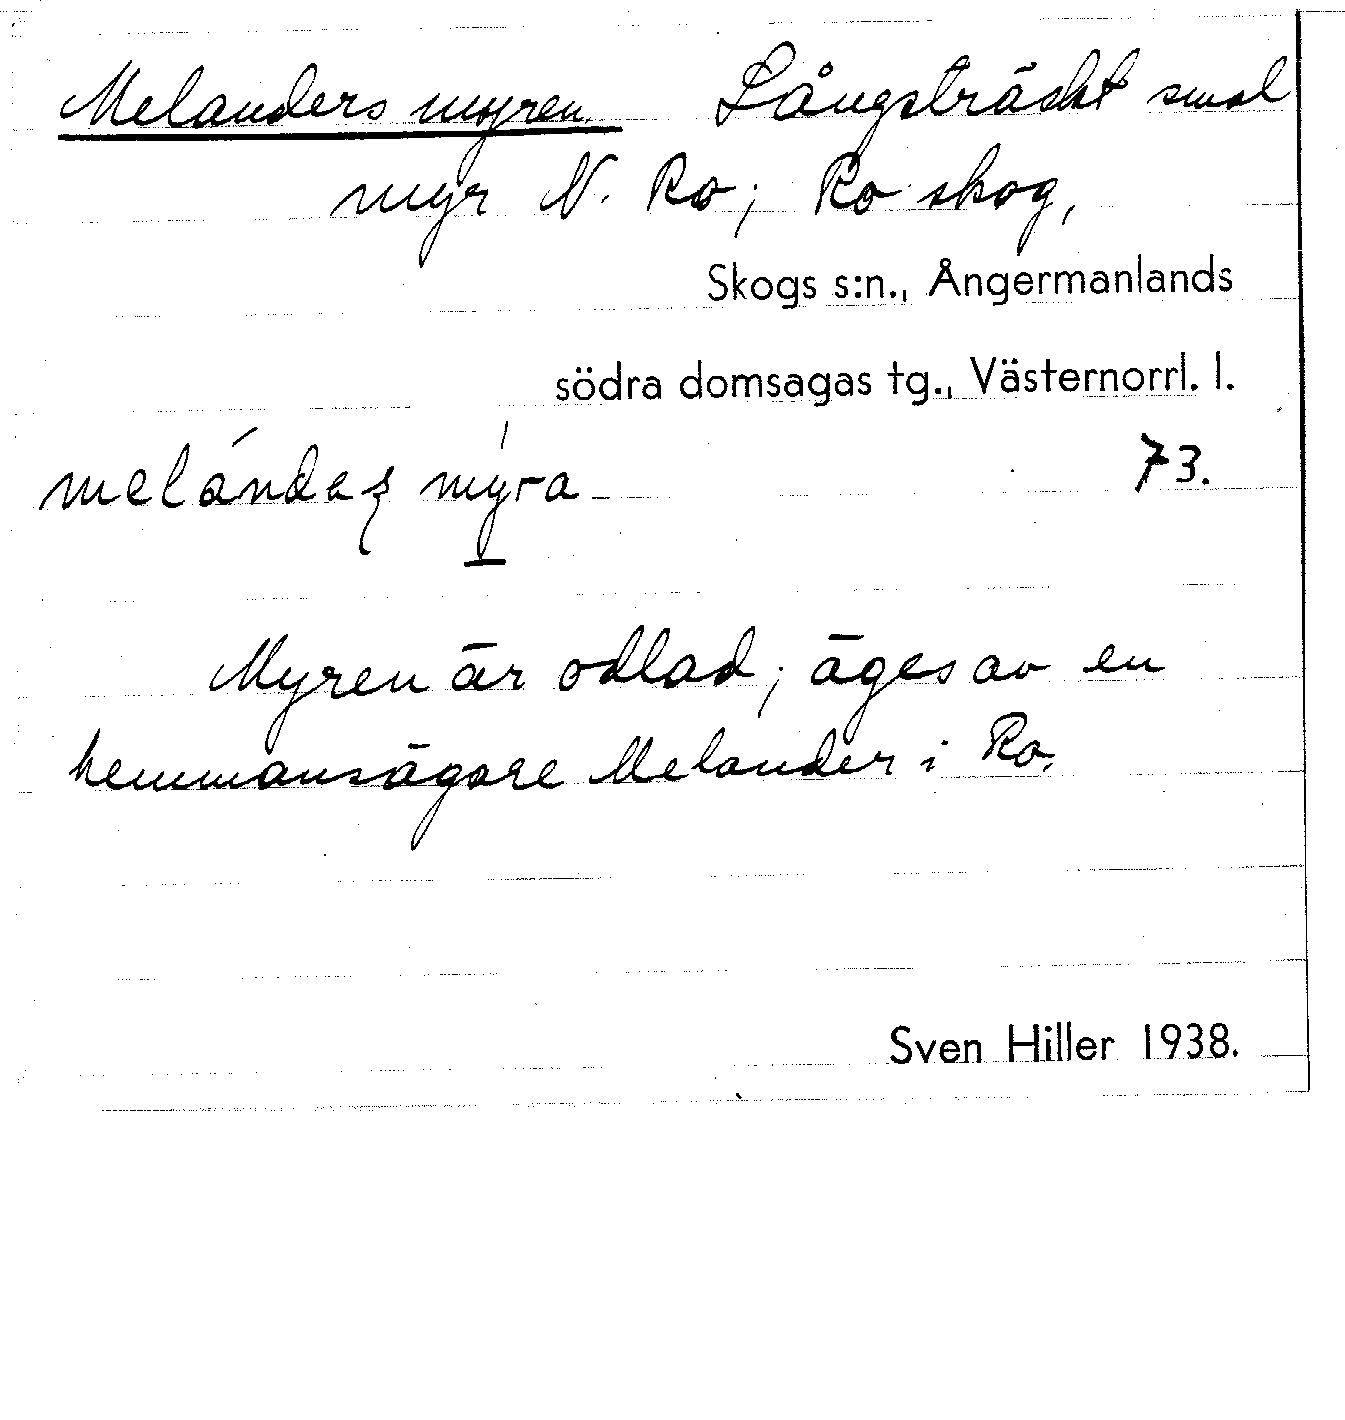 Melanders myren. Långsträckt smal
myr N. Ro; Ro skog,
Skogs s:n., Ångermanlands
södra domsagas tg., Västernorrl. l.
73.
Myren är odlad; äges av en
hemmansägare Melander i Ro.
Sven Hiller 1938.